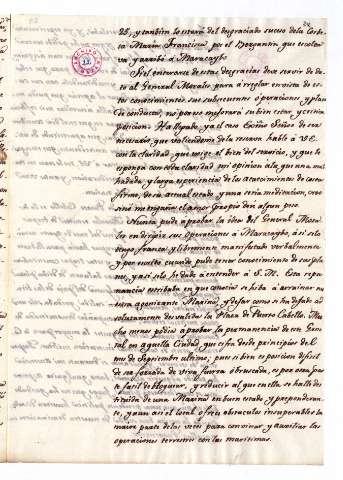 25, y tambien lo estará del desgraciado suceso de la Corbe-
ta Maria Francisca por el Bergantin que escolta-
va y arrivó á Maracaybo
Si el enterarse de estas desgracias deve servir de da-
to al General Morales para areglar en vista de es-
tos conocimientos sus subsecuentes operaciones y plan
de conducta, no por eso mejorará su bien estar, y critica
posicion. Ha llegado ya el caso Exmo Señor de ser
necesario, que valiendome de la reserva hable a V.E.
con la claridad que exige el bien del servicio, y que le
esponga con esta claridad mi opinion á la que una ma-
 y larga esperiencia de los acaecimientos de costa-
firme, de su actual estado y una séria meditacion, creo
sino me engaña el amor propio den algun peso.
Nunca pude aprobar la idea del General Mora-
les en dirigir sus operaciones á Maracaybo, á si á su
tiempo, franca y libremente manifestado verbalmente
y por escrito cuando pude tener conocimiento de sus pla-
nes, y así solo he dado á entender á S.M. Esta repu-
nancia estribaba en que conocia se hiba á arruinar nu-
estra agonizante Marina, y dejar como se ha dejado ab-
solutamente desvalida la Plaza de Puerto Cabello. Mu-
cho menos podia aprobar la permanencia de este Gene-
ral en aquella Ciudad, que cifra desde principios del
mes de Septiembre ultimo, pues si bien es posicion dificil
de ser forzada de viva fuerza ó brusada, es por otra par-
te facil de bloquear, y reducir al que en ella se halle des-
tituido de una Marina en buen estado y preponderan-
te, y aun asi el local ofrece obstaculos insuperables la
mayor parte de las veces para convinar, y auxiliar las
operaciones terrestres con las maritimas.